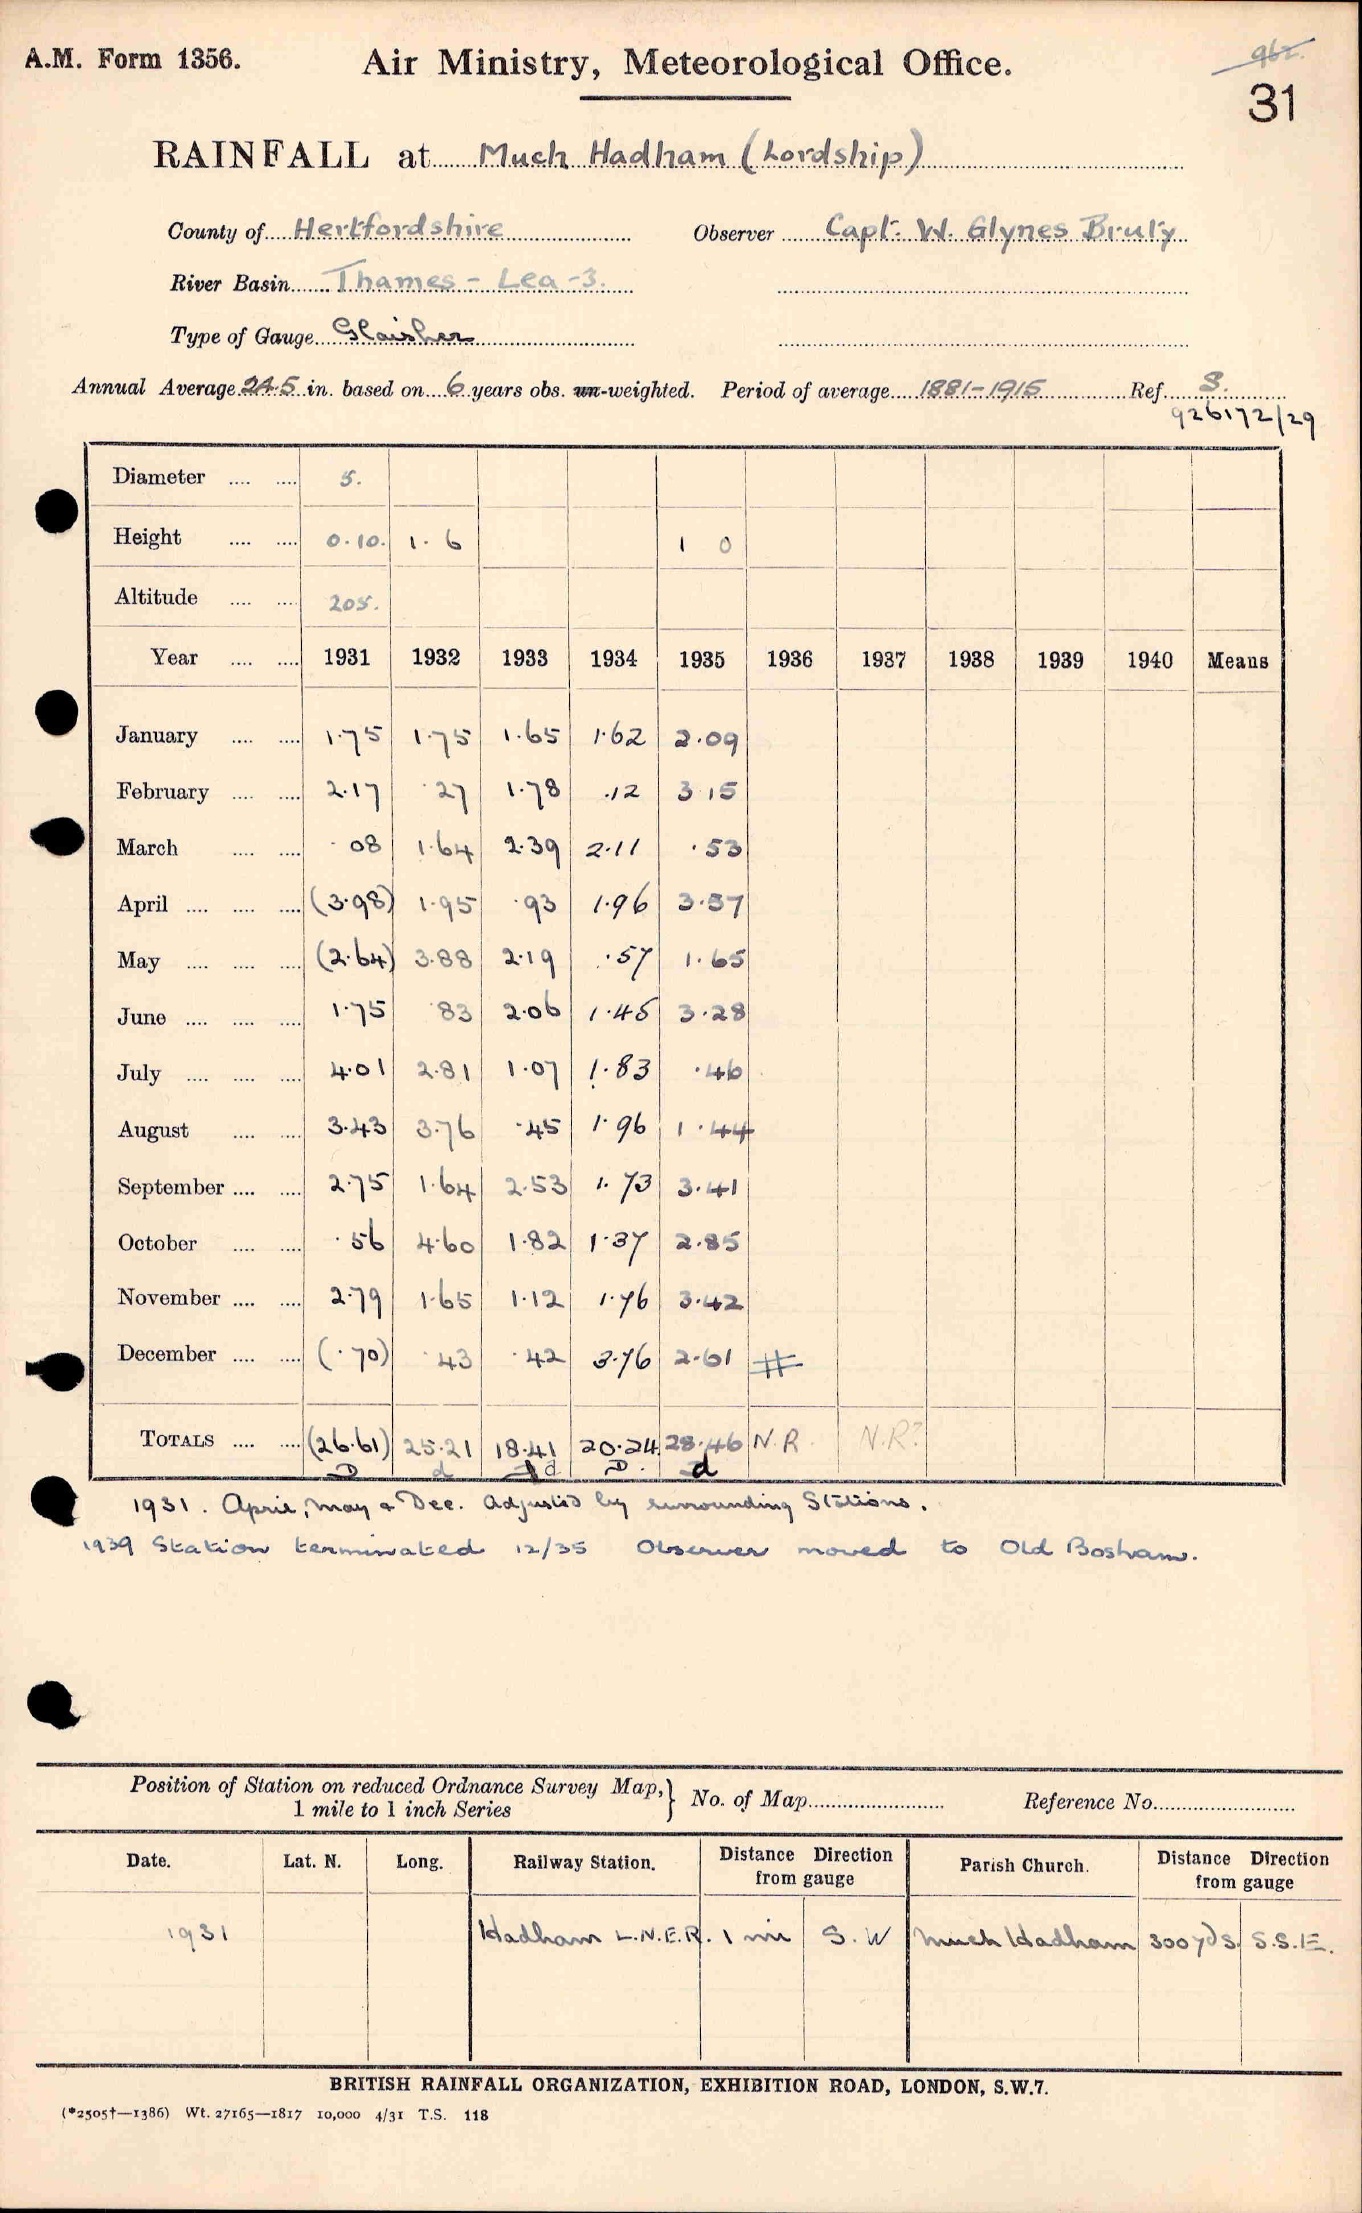 A.M. Form 1356. Air Ministry, Meteorological Office. 962.
31
RAINFALL at Much Hadham (Lordship)
County of Hertfordshire Observer Capt. W. Glynes Bruty
River Basin Thames - Lea -3.
Type of Gauge Glaisher
Annual Average 24.5 in. based on 6 years obs. un-weighted. Period of average 1881-1915 Ref. S.
926172/29
Diameter 5.
Height 0.10. 1. 6 1 0
Altitude 205.
Year 1931 1932 1933 1934 1935 1936 1937 1938 1939 1940 Means
January 1.75 1.75 1.65 1.62 2.09
February 2.17 .27 1.78 .12 3.15
March .08 1.64 2.39 2.11 .53
April (3.98) 1.95 .93 1.96 3.57
May (2.64) 3.88 2.19 .57 1.65
June 1.75 .83 2.06 1.45 3.28
July 4.01 2.81 1.07 1.83 .46
August 3.43 3.76 .45 1.96 1.44
September 2.75 1.64 2.53 1.73 3.41
October .56 4.60 1.82 1.37 2.85
November 2.79 1.65 1.12 1.76 3.42
December (.70) .43 .42 3.76 2.61 #
TOTALS (26.61) 25.21 18.41 20.24 28.46 N.R. N.R?
D d d D. d
1931. April, May & Dec. adjusted by surrounding Stations.
1939 Station terminated 12/35 Observer moved to Old Bosham.
Position of Station on reduced Ordnance Survey Map, 1 mile to 1 inch Series } No. of Map Reference No.
Date. Lat. N. Long. Railway Station. Distance Direction from gauge Parish Church. Distance Direction from gauge
1931 Hadham L.N.E.R. 1 mi S.W Much Hadham 300 yds. S.S.E.
BRITISH RAINFALL ORGANIZATION, EXHIBITION ROAD, LONDON, S.W.7.
(*2505†—1386) Wt. 27165—1817 10,000 4/31 T.S. 118